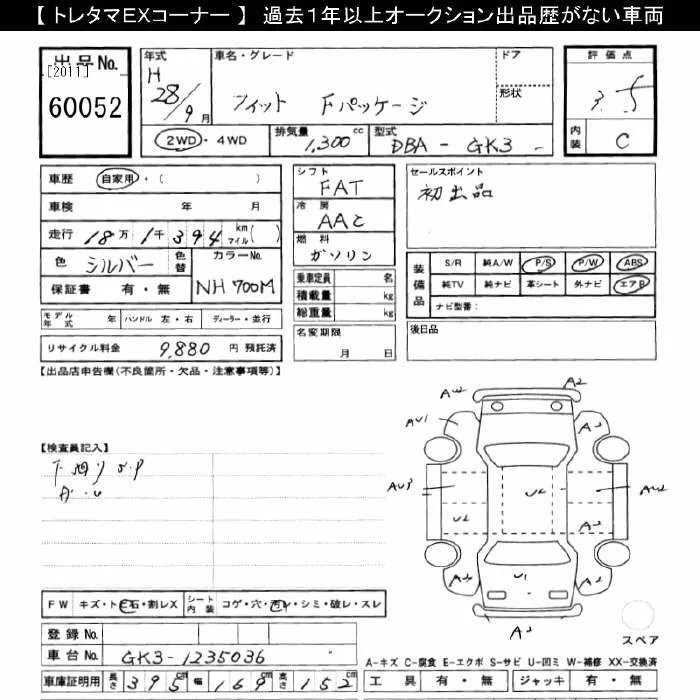 【 トレタマEXコーナー 】 過去1年以上オークション出品歴がない車両
出品No.
[2011]
60052
年式
H 28/9 月
車名・グレード
フィット Fパッケージ
ドア
形状
評価点
3.5
内装
C
2WD・4WD
排気量 1,300 cc
型式 DBA - GK3 -
車歴 自家用・( )
車検 年 月
走行 18万 1千 394 km マイル( )
色 シルバー
色替
カラーNo.
NH 700M
保証書 有・無
モデル年式 年
ハンドル 左・右
ディーラー・並行
リサイクル料金 9,880 円 預託済
シフト
FAT
冷房
AAC
燃料
ガソリン
乗車定員 名
積載量 kg
総重量 kg
名変期限
月 日
セールスポイント
初出品
装備品
S/R 純A/W P/S P/W ABS
純TV 純ナビ 革シート 外ナビ エアB
ナビ型番:
後日品
【出品店申告欄(不良箇所・欠品・注意事項等)】
【検査員記入】
AW2
A2
AU1
A2
AU3
U2
AW2
U2
A2
A2
U1
A2
A2
スペア
FW キズ・トビ石・割レX
シート内装 コゲ・穴・汚レ・シミ・破レ・スレ
登録 No.
車台 No. GK3-1235036
車庫証明用 長さ 395cm 幅 169cm 高さ 152cm
A-キズ C-腐食 E-エクボ S-サビ U-凹ミ W-補修 XX-交換済
工具 有・無 ジャッキ 有・無